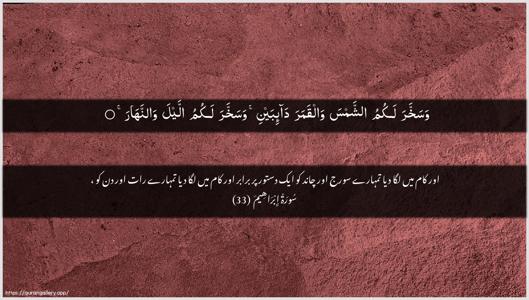 وَسَخَّرَ لَـكُمُ الشَّمْسَ وَالْقَمَرَ دَآٮِٕبَيْنِ‌ۚ وَسَخَّرَ لَـكُمُ الَّيْلَ وَالنَّهَارَ‌ۚ ○
اور کام میں لگا دیا تمہارے سورج اور چاند کو ایک دستور پر برابر اور کام میں لگا دیا تمہارے رات اور دن کو ،
سُورَةُ إِبْرَاهِيمَ (33)
https://qurangallery.app/